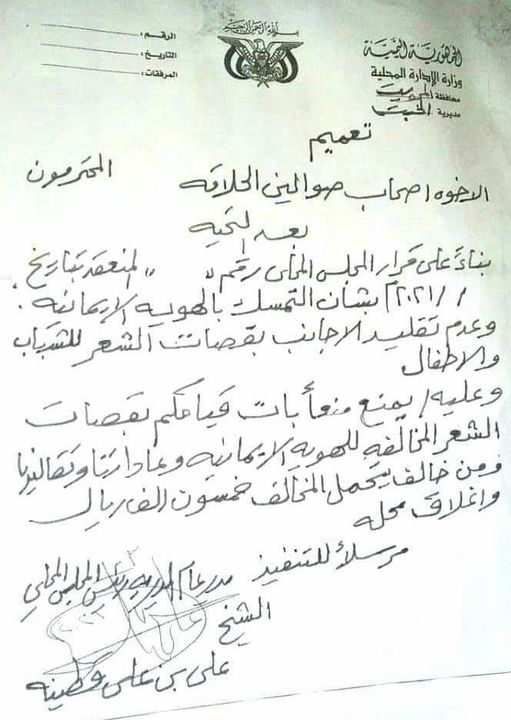 بسم الله الرحمن الرحيم
الجمهورية اليمنية
وزارة الإدارة المحلية
محافظة المحويت
مديرية الخبت
الرقم :
التاريخ :
المرفقات :
تعميم
الاخوه اصحاب صوالين الحلاقه المحترمون
بعد التحيه
بناءً على قرار المجلس المحلي رقم " " المنعقد بتاريخ
/ / ٢٠٢١م بشان التمسك بالهويه الايمانيه .
وعدم تقليد الاجانب بقصات الشعر للشباب
والاطفال
وعليه / يمنع منعاً بات قيامكم بقصات
الشعر المخالفه للهويه الايمانيه وعاداتنا وتقاليدنا
ومن خالف يتحمل المخالف خمسون الف ريال
واغلاق محله
مرسلاً للتنفيذ
مدير عام المديريه رئيس المجلس المحلي
الشيخ
علي بن علي قطينه